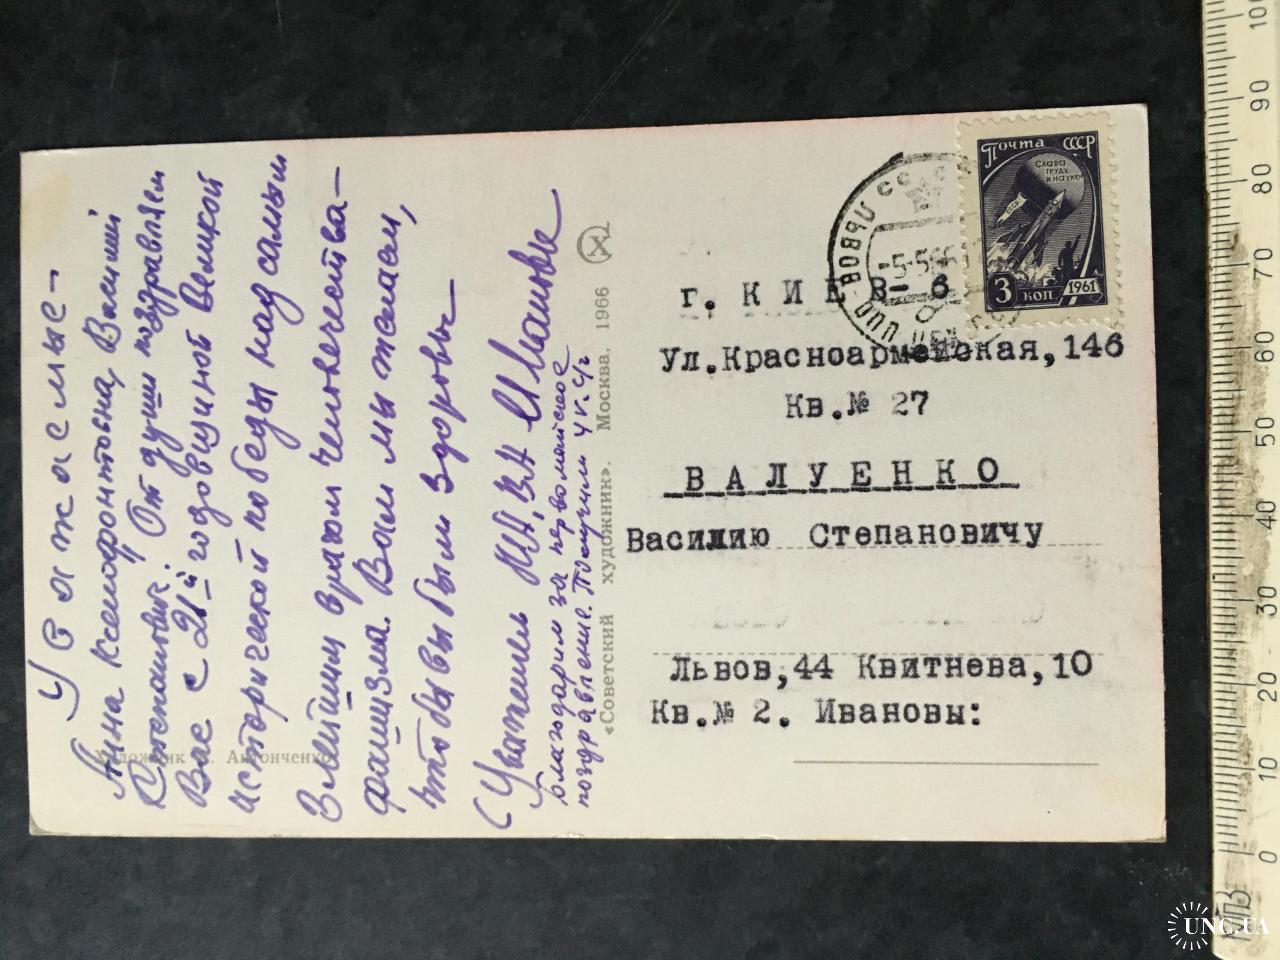 Уважаемые-
Анна Ксенофонтовна, Василий
Степанович! От души поздравляем
Вас с 21-й годовщиной Великой
исторической победы над самым
злейшим врагом человечества-
фашизма. Вам мы желаем,
чтобы вы были здоровы-
С Уважением Ивановы
благодарим за первомайское
поздравление. Получили 4 V. с/г
Художник Антонченко
«Советский художник». Москва, 1966
Почта СССР
Слава
труду
и науке
3 коп. 1961
ЛЬВОВ
-5-566
г. КИЕВ- 6
Ул.Красноармейская,146
Кв.№ 27
ВАЛУЕНКО
Василию Степановичу
Львов,44 Квитнева,10
Кв.№ 2. Ивановы:
0 10 20 30 40 50 60 70 80 90 100
UNC.UA